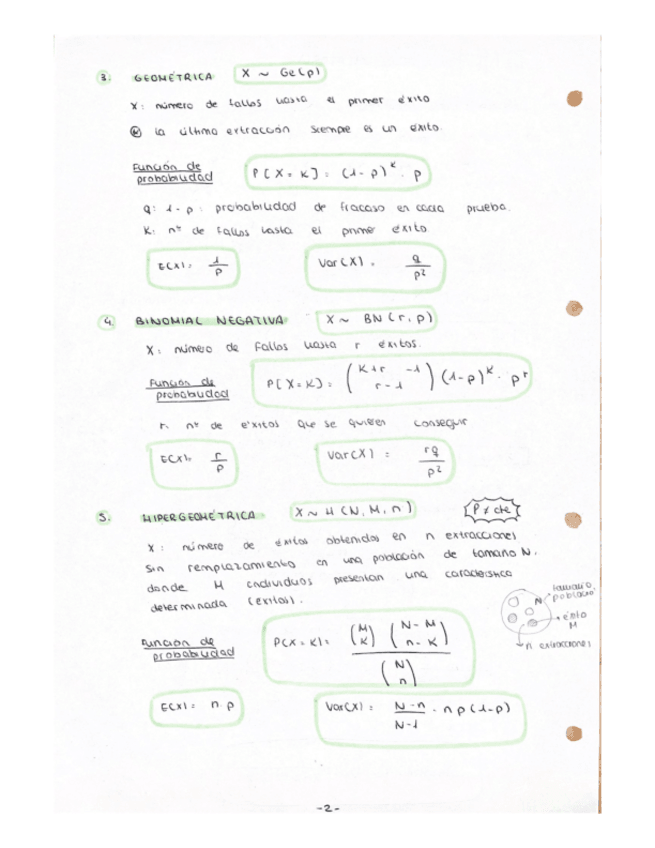 3. GEOMÉTRICA X ~ Ge(p)
X: número de fallos hasta el primer éxito
la última extracción siempre es un éxito.
Función de probabilidad P[X=K] = (1-p)^K · p
q: 1-p: probabilidad de fracaso en cada prueba.
K: nº de fallos hasta el primer éxito
E(X) = 1/p Var(X) = q/p²
4. BINOMIAL NEGATIVA X ~ BN(r, p)
X: número de fallos hasta r éxitos.
Función de probabilidad P[X=K] = (K+r-1 / r-1) (1-p)^K · p^r
r: nº de éxitos que se quieren conseguir
E(X) = r/p Var(X) = rq/p²
5. HIPERGEOMÉTRICA X ~ H(N, M, n) P ≠ cte
X: número de éxitos obtenidos en n extracciones
sin remplazamiento en una población de tamaño N,
donde M individuos presentan una característica
determinada (éxitos).
tamaño población
N
éxito
M
n extracciones
Función de probabilidad P(X=K) = (M / K) (N-M / n-K) / (N / n)
E(X) = n·p Var(X) = N-n/N-1 · n p (1-p)
-2-